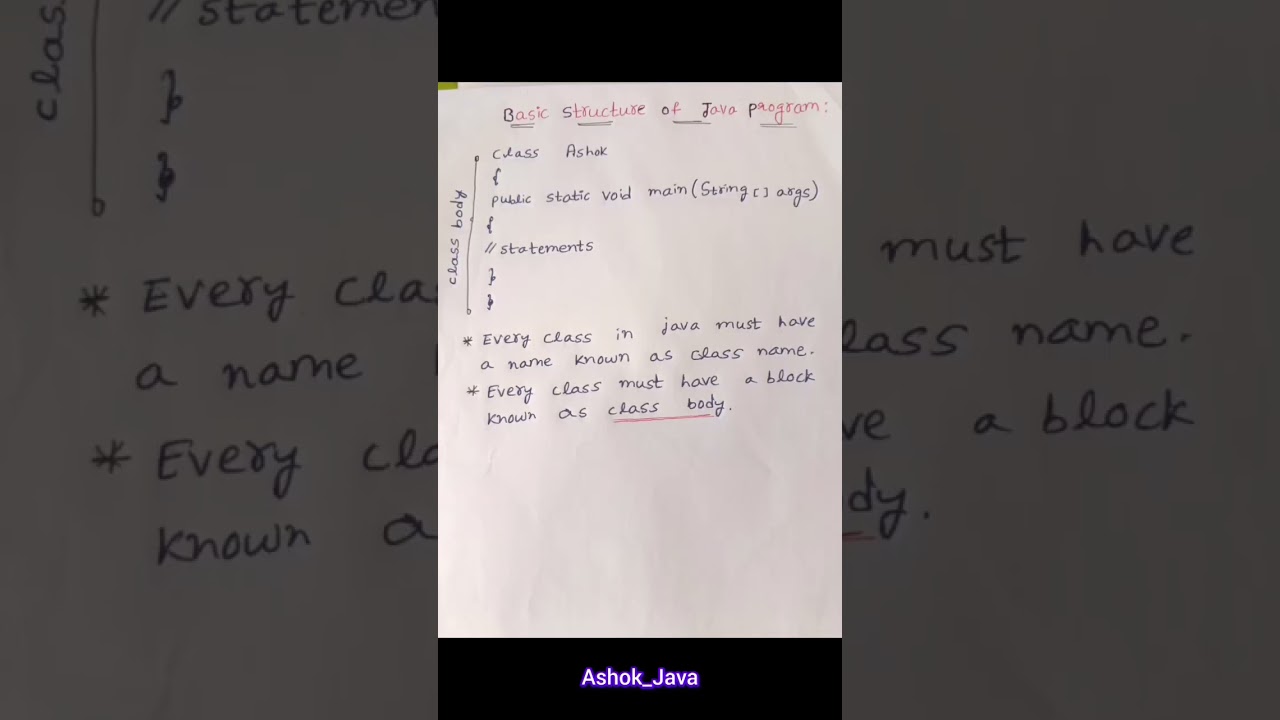 Basic Structure of Java program:
class Ashok
{
public static void main(String[] args)
{
// statements
}
}
class body
* Every class in java must have
a name known as class name.
* Every class must have a block
known as class body.
Ashok_Java